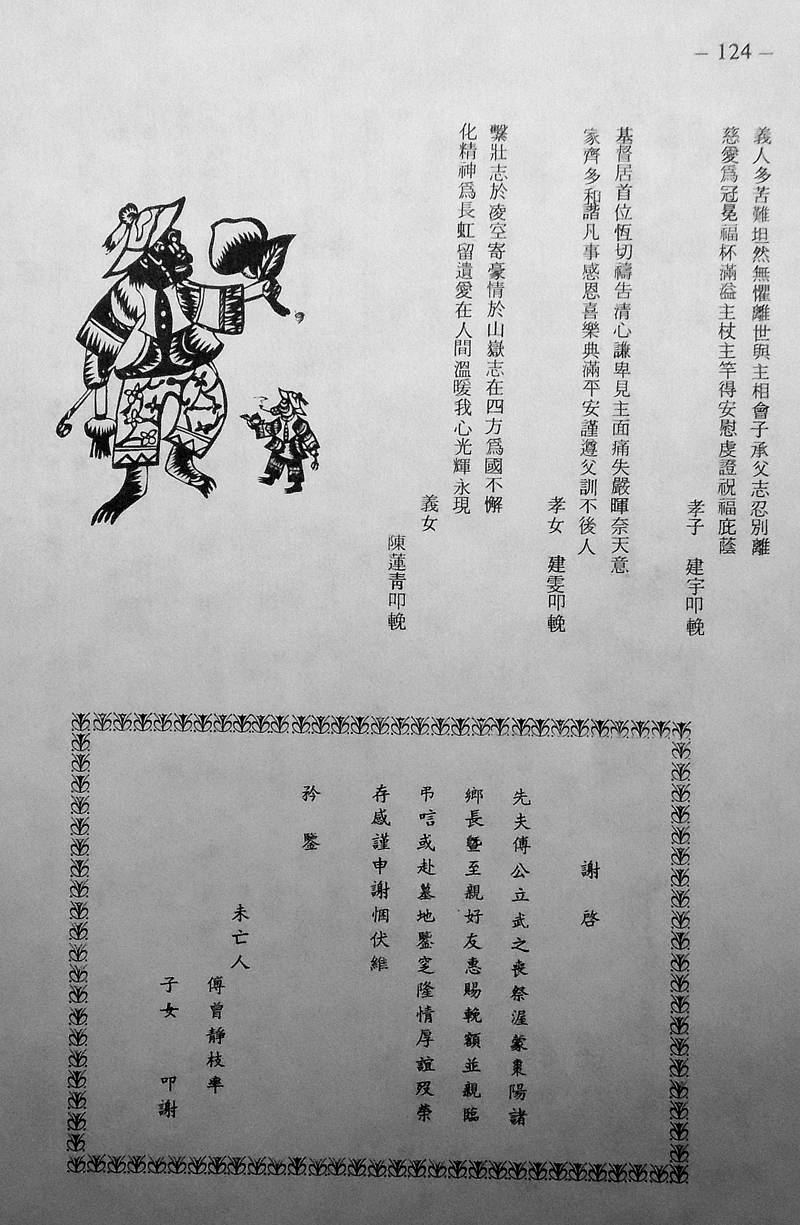 — 124 —
義人多苦難坦然無懼離世與主相會子承父志忍別離
慈愛爲冠冕福杯滿溢主杖主竿得安慰虔證祝福庇蔭
孝子　建宇叩輓
基督居首位恆切禱告清心謙卑見主面痛失嚴暉奈天意
家齊多和諧凡事感恩喜樂典滿平安謹遵父訓不後人
孝女　建雯叩輓
繫壯志於凌空寄豪情於山嶽志在四方爲國不懈
化精神爲長虹留遺愛在人間溫暖我心光輝永現
義女
陳蓮青叩輓
謝啓
先夫傅公立武之喪祭渥蒙棗陽諸
鄉長暨至親好友惠賜輓額並親臨
弔唁或赴墓地鑒窆隆情厚誼歿榮
存感謹申謝悃伏維
矜鑒
未亡人
傅曾靜枝率
子女　叩謝